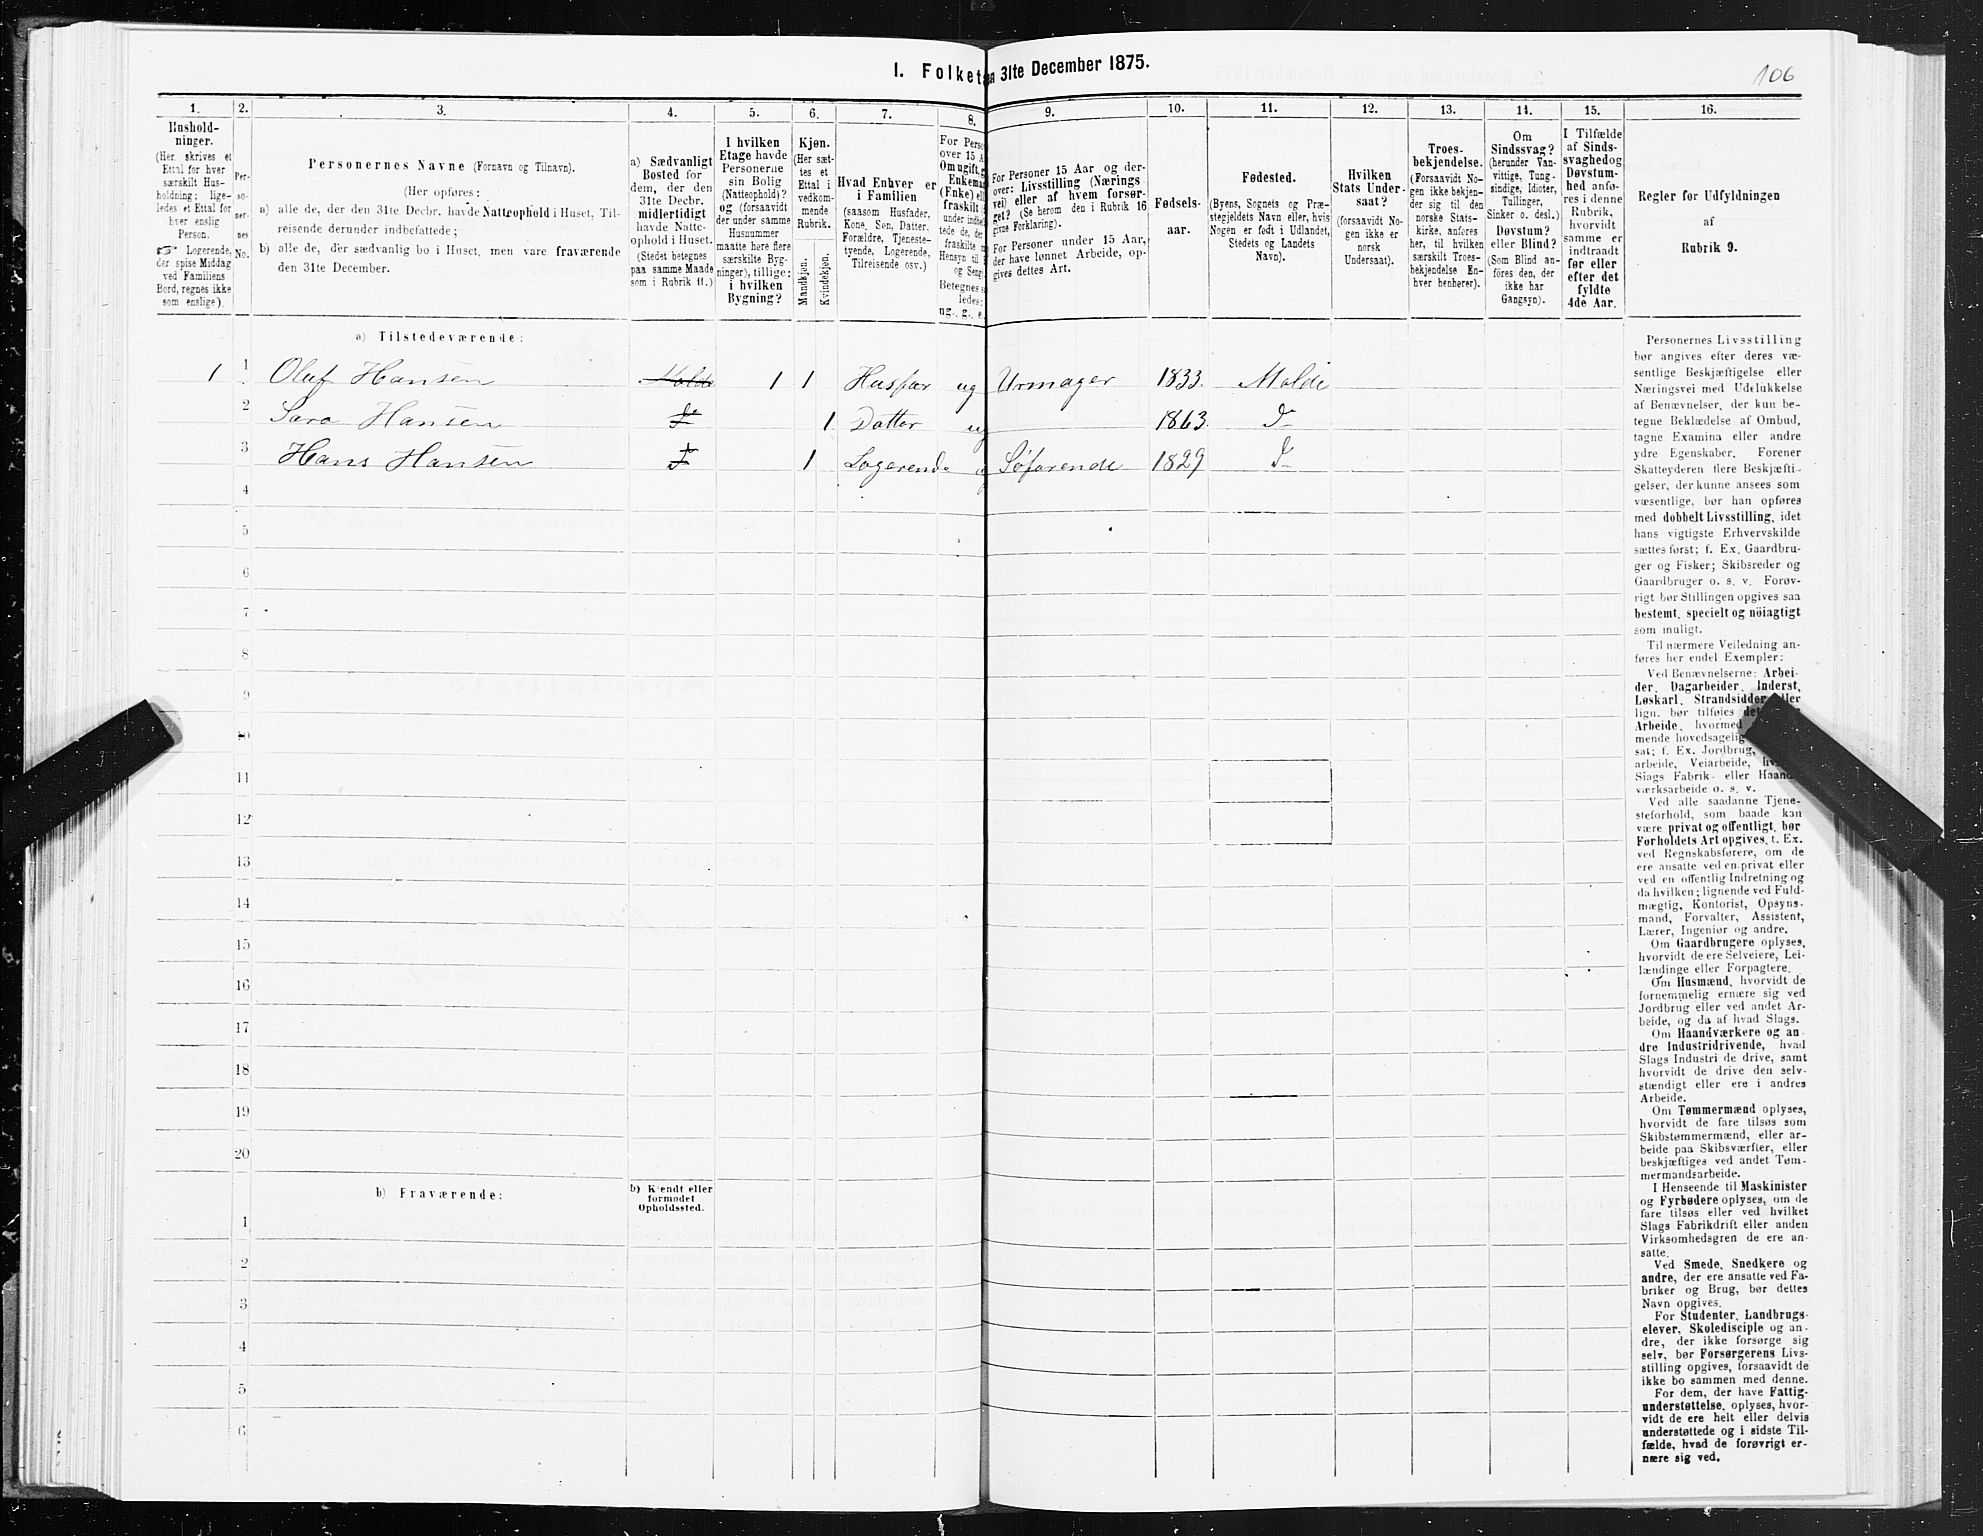 1. Folket en 31te December 1875.
106
1.
2.
3.
4.
5.
6.
7.
8.
9.
10.
11.
12.
13.
14.
15.
16.
Hushold-
ninger.
(Her skrives et
Ettal for hver
særskilt Hus-
holdning; lige-
ledes et Ettal for
hver enslig
Person.
☞ Logerende,
der spise Middag
ved Familiens
Bord, regnes ikke
som enslige).
Per-
so-
ner-
nes
No.
Personernes Navne (Fornavn og Tilnavn).
(Her opføres:
a) alle de, der den 31te Decbr. havde Natteophold i Huset, Til-
reisende derunder indbefattede;
b) alle de, der sædvanlig bo i Huset, men vare fraværende
den 31te December.
a) Sædvanligt
Bosted for
dem, der den
31te Decbr.
midlertidigt
havde Natte-
ophold i Huset.
(Stedet betegnes
paa samme Maade
som i Rubrik 11.)
I hvilken
Etage havde
Personerne
sin Bolig
(Natteophold)?
og (forsaavidt
der under samme
Husnummer
maatte høre flere
særskilte Byg-
ninger), tillige:
i hvilken
Bygning?
Kjøn.
(Her sæt-
tes et
Ettal i
vedkom-
mende
Rubrik.
Mandkjøn.
Kvindekjøn.
Hvad Enhver er
i Familien
(saasom Husfader,
Kone, Søn, Datter,
Forældre, Tjeneste-
tyende, Logerende,
Tilreisende osv.)
For Perso
over 15 A
Om ugift, g
Enkema
(Enke) el
fraskilt
under indbe
tede de, de
fraskilte
Hensyn til
og Seng
Betegnes s
ledes:
ug., g., e.
For Personer 15 Aar og der-
over: Livsstilling (Nærings
vei) eller af hvem forsør-
get? (Se herom den i Rubrik 16
givne Forklaring).
For Personer under 15 Aar,
der have lønnet Arbeide, op-
gives dettes Art.
Fødsels-
aar.
Fødested.
(Byens, Sognets og Præ-
stegjeldets Navn eller, hvis
Nogen er født i Udlandet,
Stedets og Landets
Navn).
Hvilken
Stats Under-
saat?
(forsaavidt No-
gen ikke er
norsk
Undersaat).
Troes-
bekjendelse.
(Forsaavidt No-
gen ikke bekjen-
der sig til den
norske Stats-
kirke, anføres
her, til hvilken
særskilt Troes-
bekjendelse En-
hver henhører).
Om
Sindssvag?
(herunder Van-
vittige, Tung-
sindige, Idioter,
Tullinger,
Sinker o. desl.)
Døvstum?
eller Blind?
(Som Blind an-
føres den, der
ikke har
Gangsyn).
I Tilfælde
af Sinds-
svaghed og
Døvstum-
hed anfø-
res i denne
Rubrik,
hvorvidt
samme er
indtraadt
før eller
efter det
fyldte
4de Aar.
Regler for Udfyldningen
af
Rubrik 9.
a) Tilstedeværende:
1 1 Oluf Hansen Molde 1 1 Husfar ug Urmager 1833. Molde
2 Sara Hansen do 1 Datter ug 1863 do
3 Hans Hansen do 1 Logerende ug Søfarende 1829 do
4
5
6
7
8
9
10
11
12
13
14
15
16
17
18
19
20
b) Fraværende:
b) Kjendt eller
formodet
Opholdssted.
1
2
3
4
5
6
Personernes Livsstilling
bør angives efter deres væ-
sentlige Beskjæftigelse eller
Næringsvei med Udelukkelse
af Benævnelser, der kun be-
tegne Beklædelse af Ombud,
tagne Examina eller andre
ydre Egenskaber. Forener
Skatteyderen flere Beskjæfti-
gelser, der kunne ansees som
væsentlige, bør han opføres
med dobbelt Livsstilling, idet
hans vigtigste Erhvervskilde
sættes først; f. Ex. Gaardbru-
ger og Fisker; Skibsreder og
Gaardbruger o. s. v. Forøv-
rigt bør Stillingen opgives saa
bestemt, specielt og nöiagtigt
som muligt.
Til nærmere Veiledning an-
føres her endel Exempler:
Ved Benævnelserne: Arbei-
der, Dagarbeider, Inderst,
Løskarl, Strandsidder eller
lign. bør tilføies det
Arbeide, hvormed
mende hovedsagelig
sat; f. Ex. Jordbrug,
arbeide, Veiarbeide,
Slags Fabrik- eller Haand-
værksarbeide o. s. v.
Ved alle saadanne Tjene-
steforhold, som baade kan
være privat og offentligt, bør
Forholdets Art opgives, f. Ex.
ved Regnskabsførere, om de
ere ansatte ved en privat eller
ved en offentlig Indretning og
da hvilken; lignende ved Fuld-
mægtig, Kontorist, Opsyns-
mand, Forvalter, Assistent,
Lærer, Ingeniør og andre.
Om Gaardbrugere oplyses,
hvorvidt de ere Selveiere, Lei-
lændinge eller Forpagtere.
Om Husmænd, hvorvidt de
fornemmelig ernære sig ved
Jordbrug eller ved andet Ar-
beide, og da af hvad Slags.
Om Haandværkere og an-
dre Industridrivende, hvad
Slags Industri de drive, samt
hvorvidt de drive den selv-
stændigt eller ere i andres
Arbeide.
Om Tømmermænd oplyses,
hvorvidt de fare tilsøs som
Skibstømmermænd, eller ar-
beide paa Skibsværfter, eller
beskjæftiges ved andet Tøm-
mermandsarbeide.
I Henseende til Maskinister
og Fyrbødere oplyses, om de
fare tilsøs eller ved hvilket
Slags Fabrikdrift eller anden
Virksomhedsgren de ere an-
satte.
Ved Smede, Snedkere og
andre, der ere ansatte ved Fa-
briker og Brug, bør dettes
Navn opgives.
For Studenter, Landbrugs-
elever, Skoledisciple og an-
dre, der ikke forsørge sig
selv, bør Forsørgerens Livs-
stilling opgives, forsaavidt de
ikke bo sammen med denne.
For dem, der have Fattig-
understøttelse, oplyses, hvor-
vidt de ere helt eller delvis
understøttede og i sidste Til-
fælde, hvad de forøvrigt er-
nære sig ved.